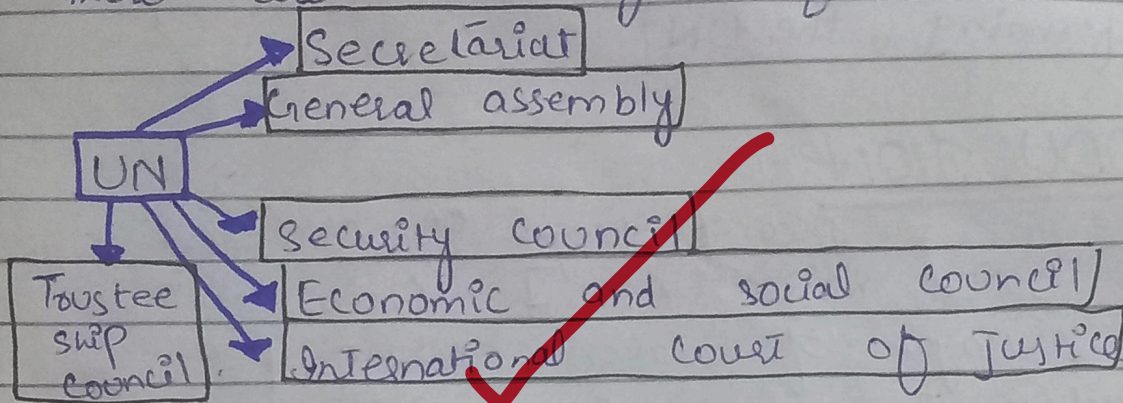 Secretariat
General assembly
UN
Security council
Trustee
Economic and social council
ship
International court of Justice
council